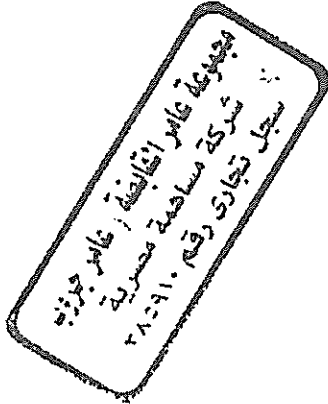 مجموعة عامر القابضة ( عامر جروب
شركة مساهمة مصرية
سجل تجارى رقم